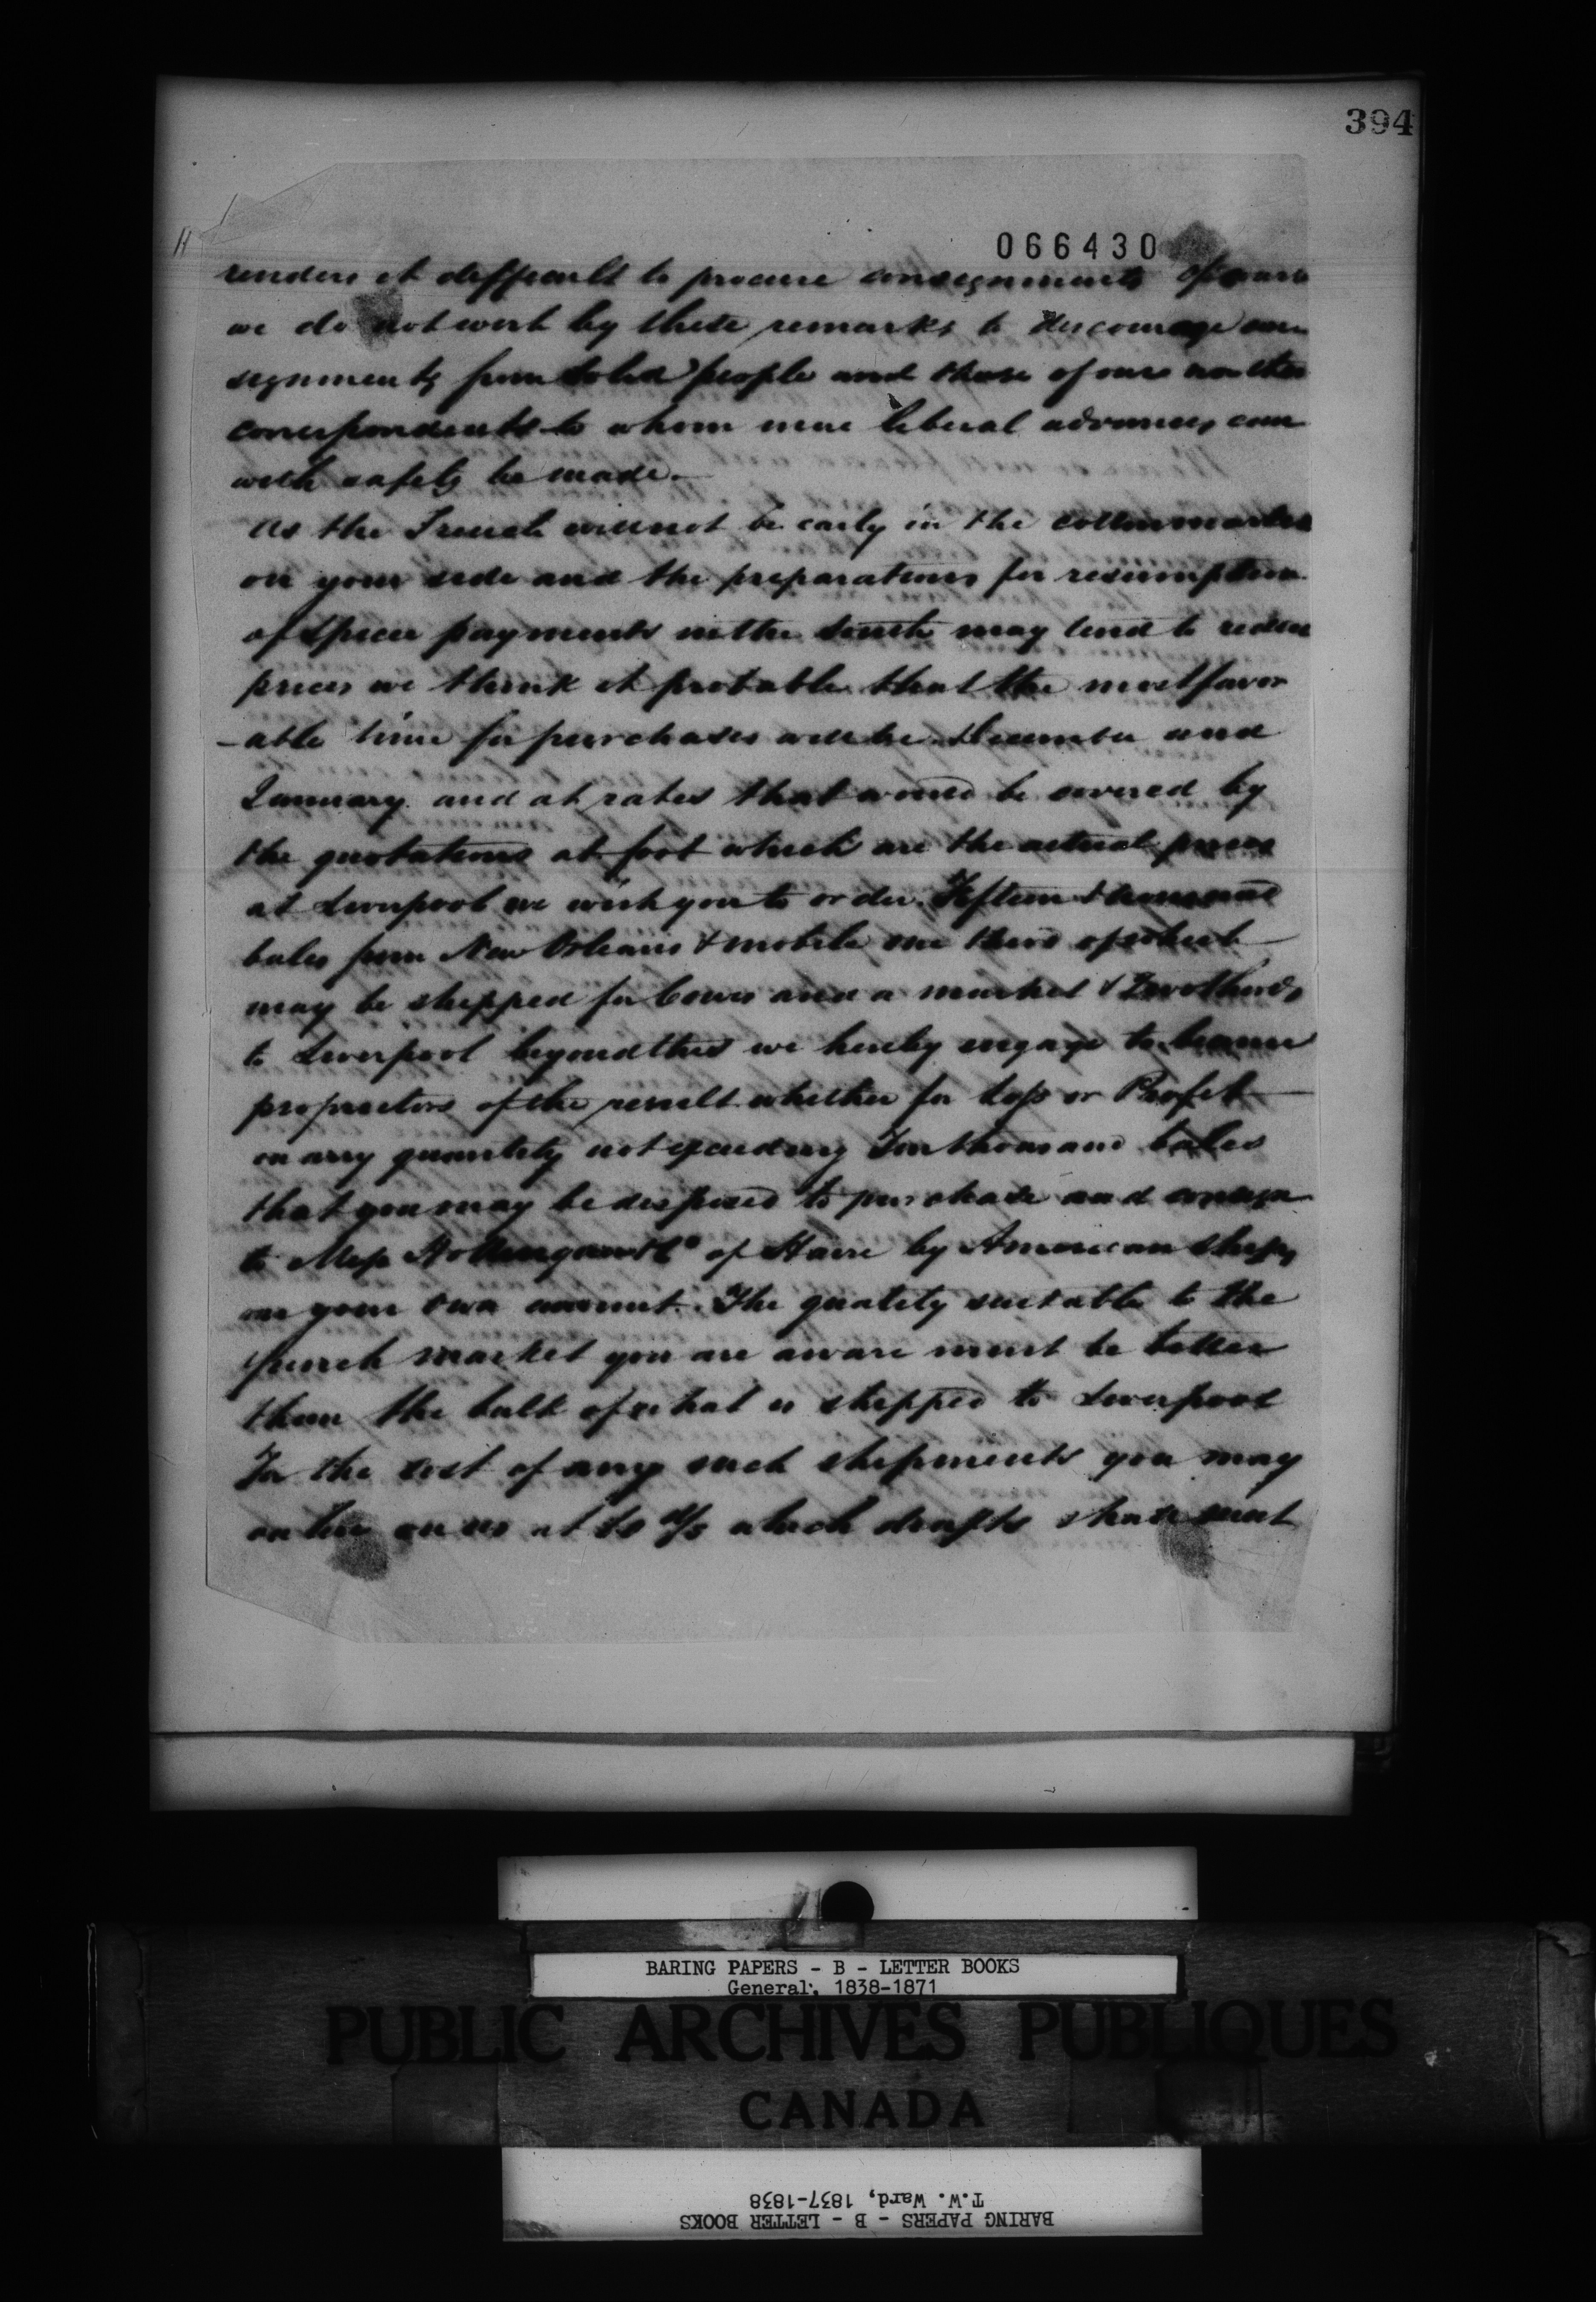 394
066430
renders it difficult to procure consignments of course
we do not wish by these remarks to discourage con
signments from solid people and those of our
correspondents to whom more liberal advances can
with safety be made.
As the French will not be early in the cotton market
on your side and the preparations for resumption
of specie payments in the South may tend to reduce
prices we think it probable that the most favor
-able time for purchases will be December and
January and at rates that would be covered by
the quotations at foot which are the actual prices
at Liverpool we wish you to order Fifteen thousand
bales from New Orleans & Mobile one third of which
may be shipped for Cowes and a market & Two thirds
to Liverpool beyond this we hereby engage to become
proprietors of the result whether for loss or Profit
on any quantity not exceeding Ten thousand bales
that you may be disposed to purchase and consign
to Mess Hottinguer & Co of Havre by American ships
on your own account. The quality suitable to the
french market you are aware must be better
than the bulk of what is shipped to Liverpool
For the cost of any such shipments you may
on us at 60 d/s which drafts shall meet
BARING PAPERS - B - LETTER BOOKS
General, 1838-1871
PUBLIC ARCHIVES PUBLIQUES
CANADA
BARING PAPERS - B - LETTER BOOKS
T.W. Ward, 1837-1838